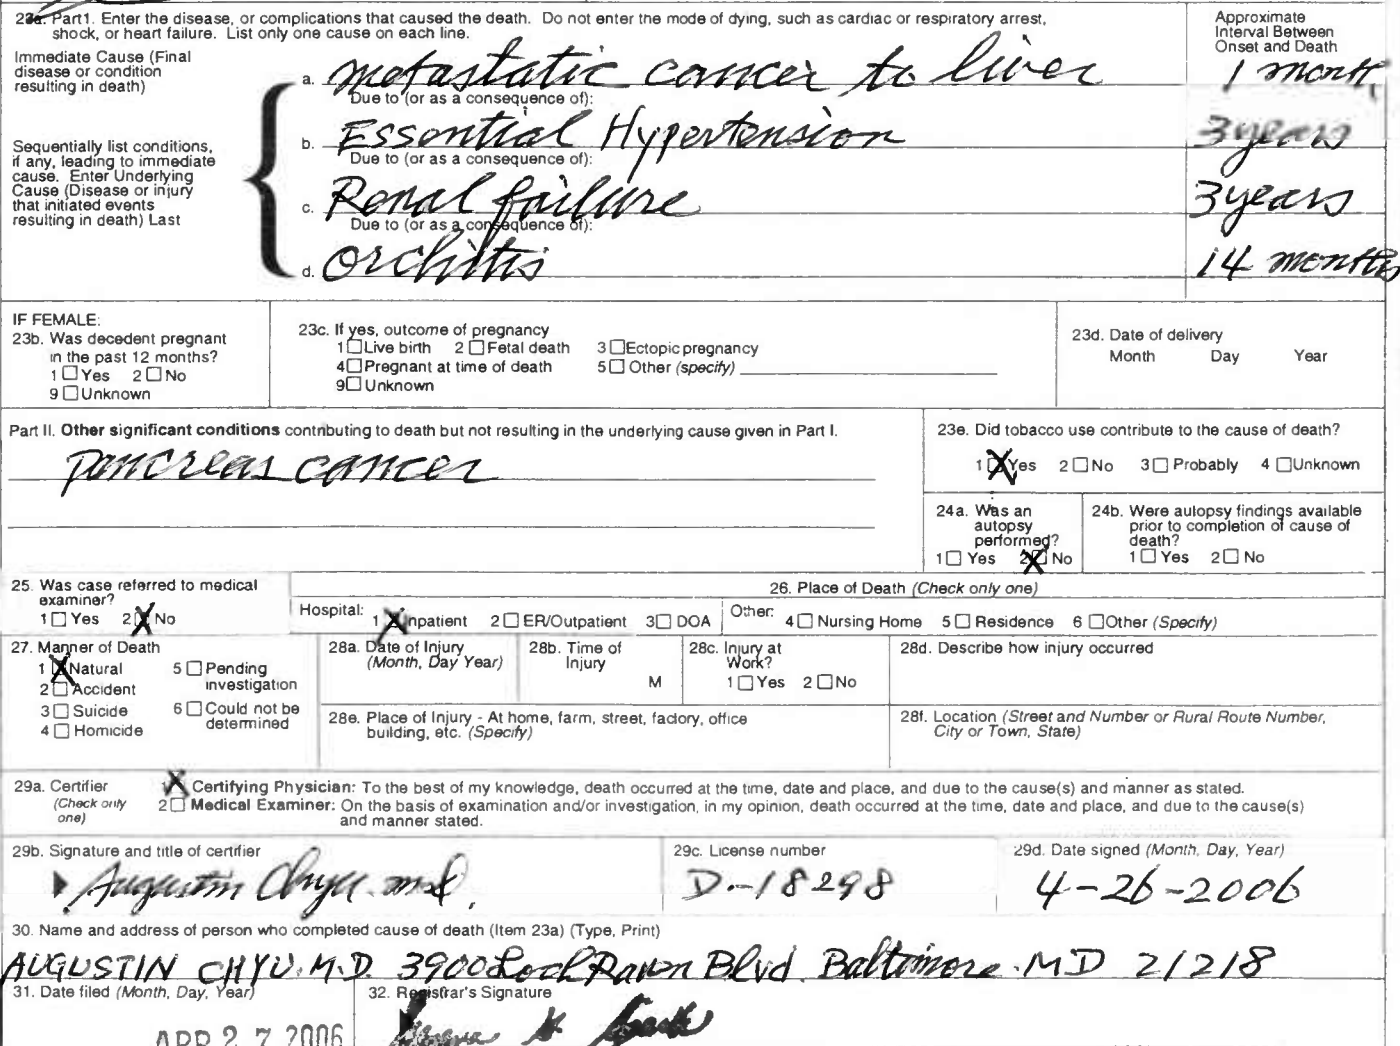 23a. Part1. Enter the disease, or complications that caused the death. Do not enter the mode of dying, such as cardiac or respiratory arrest,
shock, or heart failure. List only one cause on each line.
Approximate
Interval Between
Onset and Death
Immediate Cause (Final
disease or condition
resulting in death)
a. metastatic cancer to liver 1 month
Due to (or as a consequence of):
b. Essential Hypertension 3 years
Due to (or as a consequence of):
Sequentially list conditions,
if any, leading to immediate
cause. Enter Underlying
Cause (Disease or injury
that initiated events
resulting in death) Last
c. Renal failure 3 years
Due to (or as a consequence of):
d. orchitis 14 months
IF FEMALE:
23b. Was decedent pregnant
in the past 12 months?
1 Yes 2 No
9 Unknown
23c. If yes, outcome of pregnancy
1 Live birth 2 Fetal death 3 Ectopic pregnancy
4 Pregnant at time of death 5 Other (specify)
9 Unknown
23d. Date of delivery
Month Day Year
Part II. Other significant conditions contributing to death but not resulting in the underlying cause given in Part I.
pancreas cancer
23e. Did tobacco use contribute to the cause of death?
1 X Yes 2 No 3 Probably 4 Unknown
24a. Was an
autopsy
performed?
1 Yes 2 X No
24b. Were autopsy findings available
prior to completion of cause of
death?
1 Yes 2 No
25. Was case referred to medical
examiner?
1 Yes 2 X No
26. Place of Death (Check only one)
Hospital: 1 X Inpatient 2 ER/Outpatient 3 DOA Other: 4 Nursing Home 5 Residence 6 Other (Specify)
27. Manner of Death
1 X Natural 5 Pending
investigation
2 Accident
3 Suicide 6 Could not be
determined
4 Homicide
28a. Date of Injury
(Month, Day Year)
28b. Time of
Injury
M
28c. Injury at
Work?
1 Yes 2 No
28d. Describe how injury occurred
28e. Place of Injury - At home, farm, street, factory, office
building, etc. (Specify)
28f. Location (Street and Number or Rural Route Number,
City or Town, State)
29a. Certifier
(Check only
one)
X Certifying Physician: To the best of my knowledge, death occurred at the time, date and place, and due to the cause(s) and manner as stated.
2 Medical Examiner: On the basis of examination and/or investigation, in my opinion, death occurred at the time, date and place, and due to the cause(s)
and manner stated.
29b. Signature and title of certifier
Augustin Chyu m.d.
29c. License number
D-18298
29d. Date signed (Month, Day, Year)
4-26-2006
30. Name and address of person who completed cause of death (Item 23a) (Type, Print)
AUGUSTIN CHYU. M.D. 3900 Loch Raven Blvd. Baltimore. MD 21218
31. Date filed (Month, Day, Year)
APR 27 2006
32. Registrar's Signature